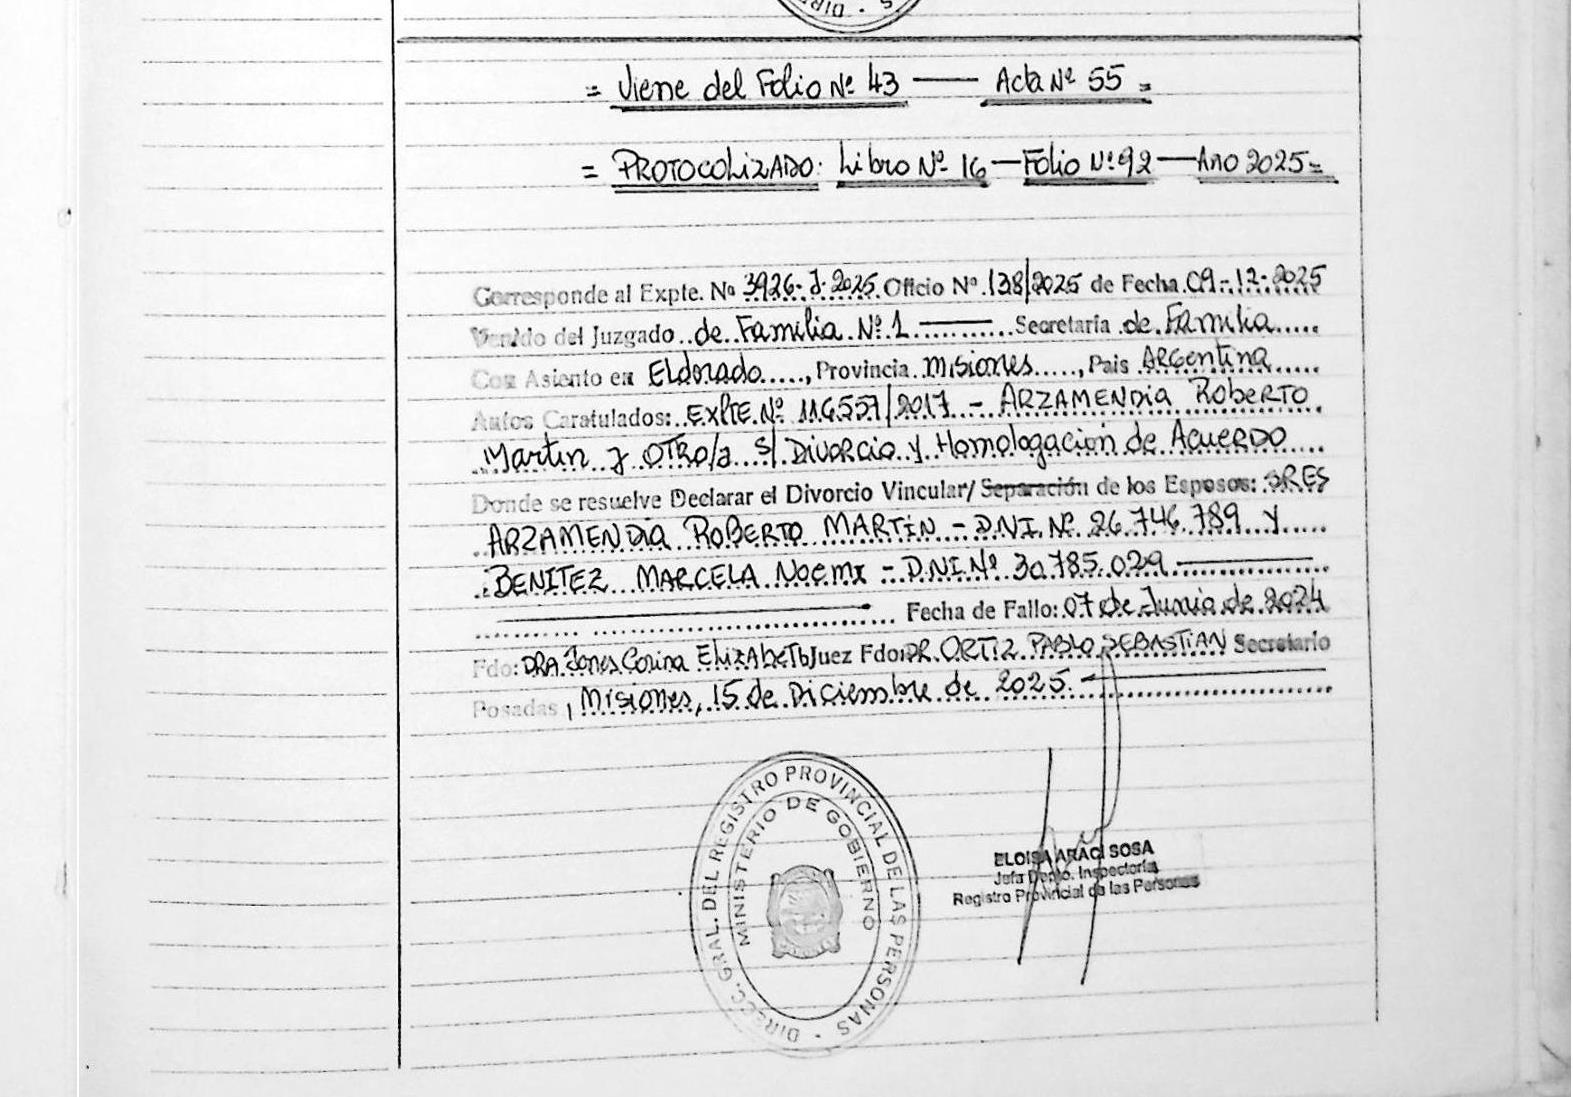 = Viene del Folio Nº 43 — Acta Nº 55 =
= PROTOCOLIZADO: Libro Nº 16 — Folio Nº 92 — Año 2025 =
Corresponde al Expte. Nº 3926-J-2025 Oficio Nº 138/2025 de Fecha 09-12-2025
Venido del Juzgado de Familia Nº 1 — Secretaría de Familia
Con Asiento en Eldorado, Provincia Misiones, Pais Argentina
Autos Caratulados: Expte. Nº 116557/2017 - ARZAMENDIA ROBERTO
Martin y OTRO/a S/ Divorcio y Homologación de Acuerdo
Donde se resuelve Declarar el Divorcio Vincular/ Separación de los Esposos: SRES
ARZAMENDIA ROBERTO MARTIN - D.N.I. Nº 26.746.789 y
BENITEZ MARCELA Noemi - D.N.I. Nº 30.785.029
Fecha de Fallo: 07 de Junio de 2024
Fdo: DRA. Jones Corina Elizabeth Juez Fdo: DR. ORTIZ PABLO SEBASTIAN Secretario
Posadas, Misiones, 15 de Diciembre de 2025.
DIRECC. GRAL. DEL REGISTRO PROVINCIAL DE LAS PERSONAS
MINISTERIO DE GOBIERNO
ELOISA ARACI SOSA
Jefa Depto. Inspectoría
Registro Provincial de las Personas